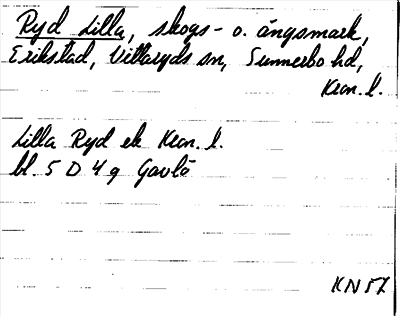 Ryd Lilla, skogs- o. ängsmark,
Erikstad, Vittaryds sn, Sunnerbo hd,
Kron. l.
Lilla Ryd ek Kron. l.
bl. 5 D 4 g Gavlö
KN 57